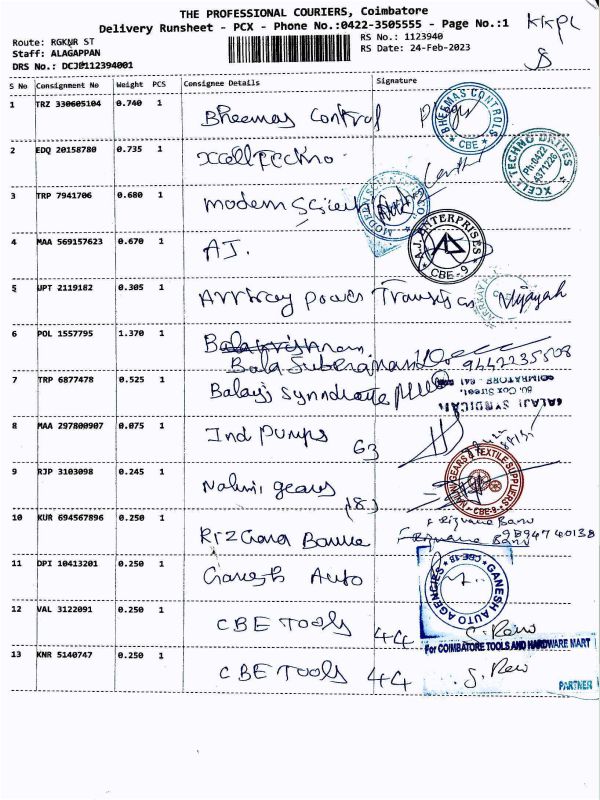 THE PROFESSIONAL COURIERS, Coimbatore
Delivery Runsheet - PCX - Phone No.:0422-3505555 - Page No.:1
KKPL
Route: RGKNR ST
RS No.: 1123940
Staff: ALAGAPPAN
RS Date: 24-Feb-2023
DRS No.: DCJD112394001
S No Consignment No Weight PCS Consignee Details Signature
1 TRZ 330605104 0.740 1 Bheemas Control
BHEEMAS CONTROLS CBE
2 EDQ 20158780 0.735 1 Xcell Techno
XCELL TECHNO DRIVES Ph:0422 4371126
3 TRP 7941706 0.680 1 Modern Scienti
4 MAA 569157623 0.670 1 AJ.
A.J. ENTERPRISES CBE-9
5 UPT 2119182 0.305 1 power Vijayah
6 POL 1557795 1.370 1
9442235508
7 TRP 6877478 0.525 1 Balaji Syndicate
BALAJI SYNDICATE
80, Cox Street,
COIMBATORE - 641
8 MAA 297800907 0.075 1 Ind Pumps 63
9 RJP 3103098 0.245 1 Nalini gears (18)
NALINI GEARS & TEXTILE SUPPLIERS CBE-9
10 KUR 694567896 0.250 1 Rizwana Banu
Rizwana Banu
9894740138
11 DPI 10413201 0.250 1 Ganesh Auto
GANESH AUTO AGENCIES CBE-18
12 VAL 3122091 0.250 1 CBE Tools 44 S. Rew
For COIMBATORE TOOLS AND HARDWARE MART
13 KNR 5140747 0.250 1 CBE Tools 44 S. Rew
PARTNER